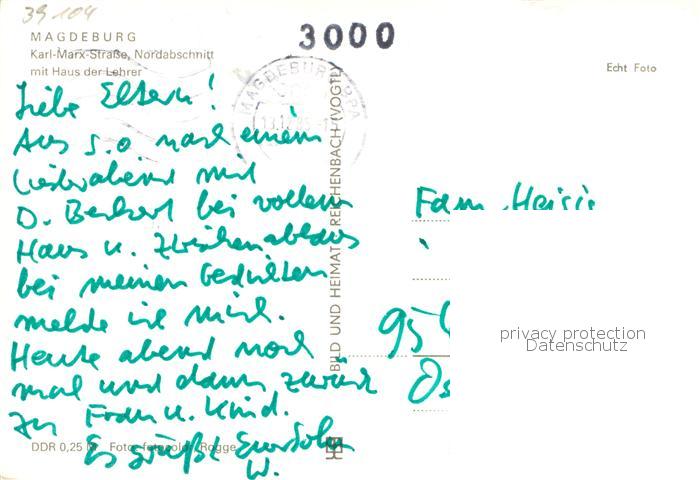 39 104
MAGDEBURG
Karl-Marx-Straße, Nordabschnitt
mit Haus der Lehrer
3000
Echt Foto
MAGDEBURG
Liebe Eltern!
Aus s.o nach einem
Liederabend mit
D. bei vollem
Haus u. Zwischenapplaus
bei meinen Gedichten
melde ich mich.
Heute abend noch
mal und dann zurück
zu Frau u. Kind.
Es grüßt Euer Sohn
W.
BILD UND HEIMAT REICHENBACH (VOGTL)
DDR 0,25 M Foto: Rogge
Fam.
95
privacy protection
Datenschutz